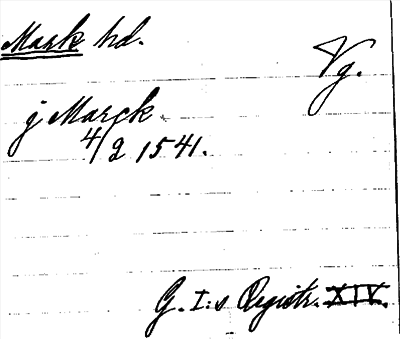 Mark hd.
Vg.
j Marck
4/2 1541.
G. I:s Registr. XIV.